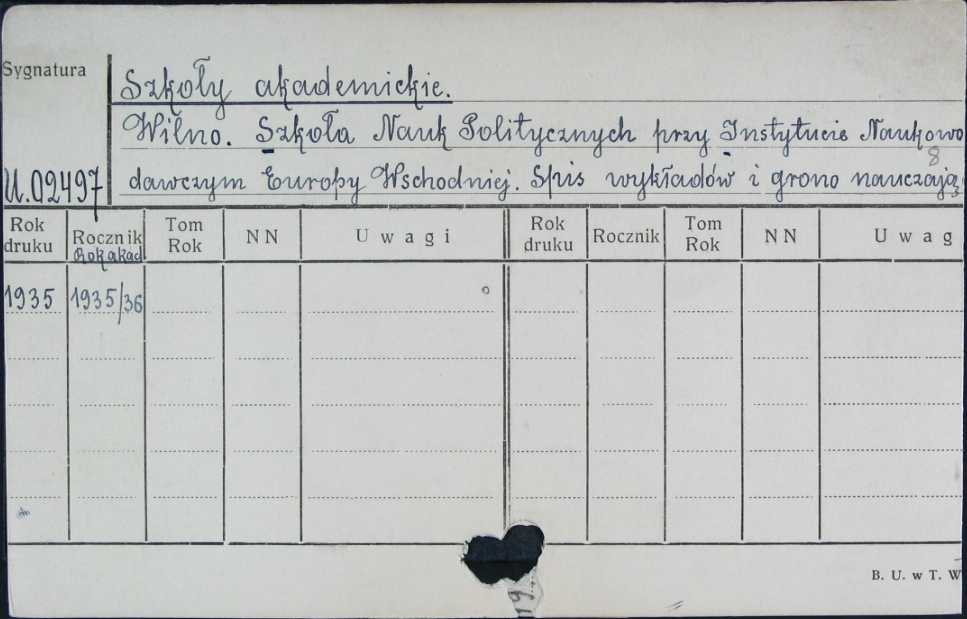 Sygnatura
Szkoły akademickie.
Wilno. Szkoła Nauk Politycznych przy Instytucie Naukowo
8
U.02497 dawczym Europy Wschodniej. Spis wykładów i grono nauczają
Rok druku Rocznik Tom Rok NN Uwagi Rok druku Rocznik Tom Rok NN Uwag
Rok akad
1935 1935/36
B. U. w T. W